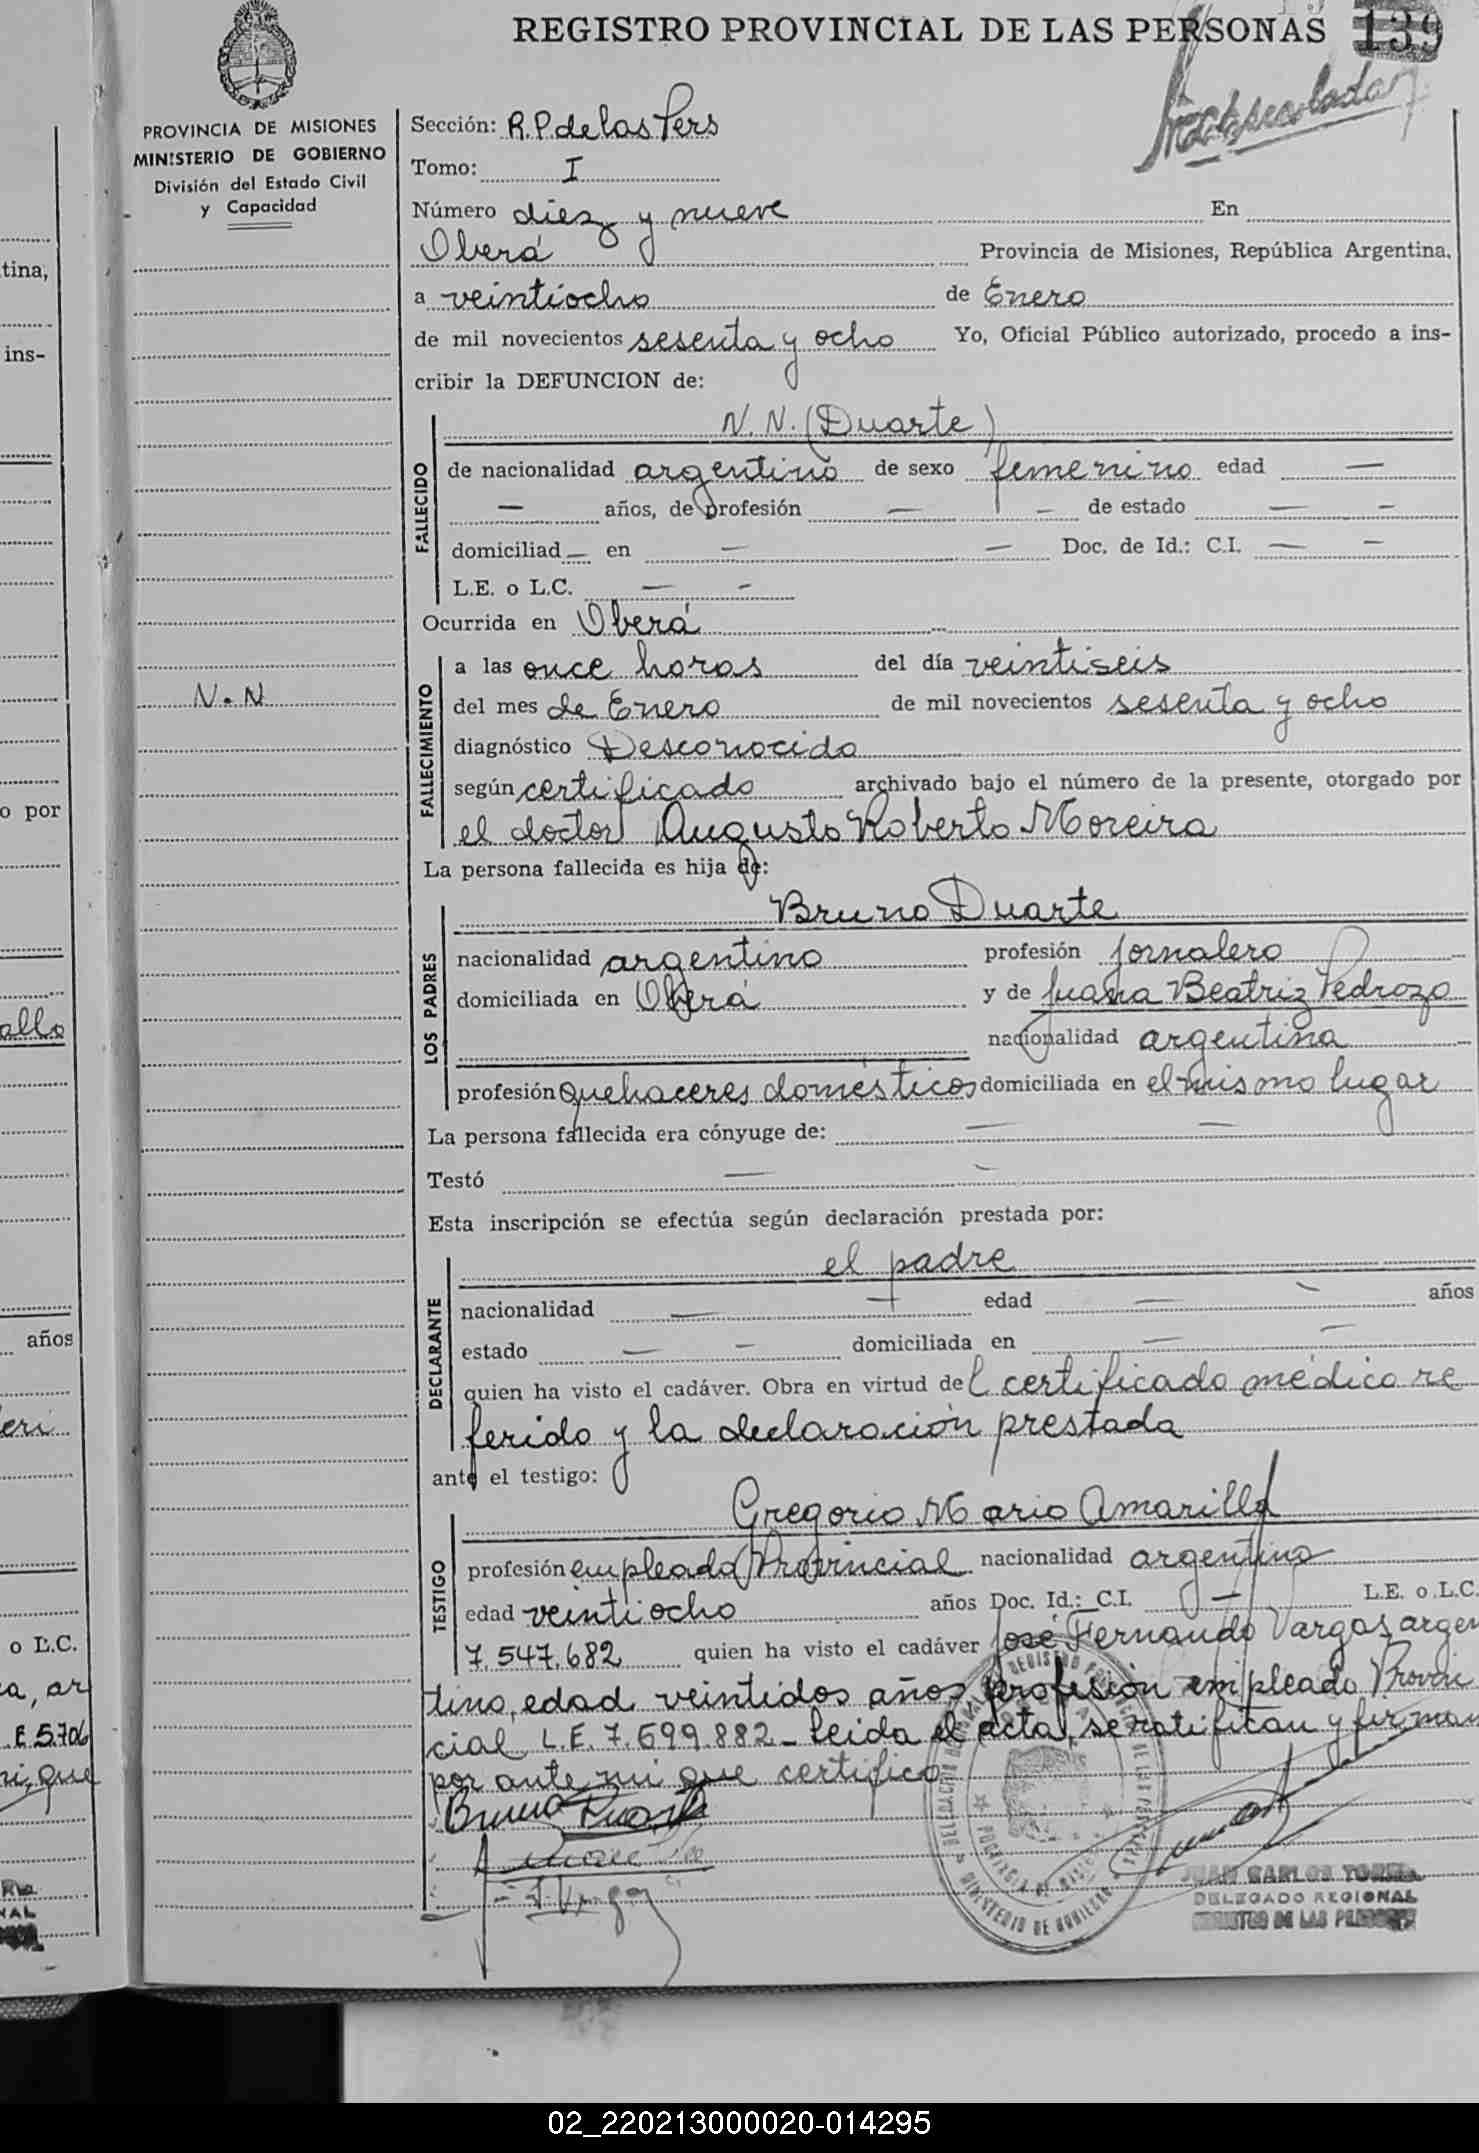 REGISTRO PROVINCIAL DE LAS PERSONAS 139
PROVINCIA DE MISIONES
MINISTERIO DE GOBIERNO
División del Estado Civil
y Capacidad
Sección: R.P. de las Pers
Tomo: I
Número diez y nueve En
Oberá Provincia de Misiones, República Argentina,
a veintiocho de Enero
de mil novecientos sesenta y ocho Yo, Oficial Público autorizado, procedo a ins-
cribir la DEFUNCION de:
N. N. (Duarte)
FALLECIDO
de nacionalidad argentino de sexo femenino edad —
— años, de profesión — - de estado — -
domiciliad — en — — Doc. de Id.: C.I. — -
L.E. o L.C. — -
Ocurrida en Oberá
N.N
FALLECIMIENTO
a las once horas del día veintiseis
del mes de Enero de mil novecientos sesenta y ocho
diagnóstico Desconocido
según certificado archivado bajo el número de la presente, otorgado por
el doctor Augusto Roberto Moreira
La persona fallecida es hija de:
LOS PADRES
Bruno Duarte
nacionalidad argentino profesión jornalero
domiciliada en Oberá y de Juana Beatriz Pedrozo
nacionalidad argentina
profesión quehaceres domésticos domiciliada en el mismo lugar
La persona fallecida era cónyuge de: — —
Testó — -
Esta inscripción se efectúa según declaración prestada por:
DECLARANTE
el padre
nacionalidad — — edad — - años
estado — - domiciliada en — —
quien ha visto el cadáver. Obra en virtud del certificado médico re
ferido y la declaración prestada
ante el testigo:
TESTIGO
Gregorio Mario Amarilla
profesión empleado Provincial nacionalidad argentino
edad veintiocho años Doc. Id.: C.I. — L.E. o L.C.
7.547.682 quien ha visto el cadáver José Fernando Vargas argen
tino, edad veintidos años profesión empleado Provin
cial L.E. 7.699.882 - leida el acta, se ratifican y firman
por ante mi que certifico
Bruno Duarte
JUAN CARLOS
DELEGADO REGIONAL
REGISTRO DE LAS PERSONAS
tina,
ins-
o por
años
o L.C.
E 5.706
02_220213000020-014295